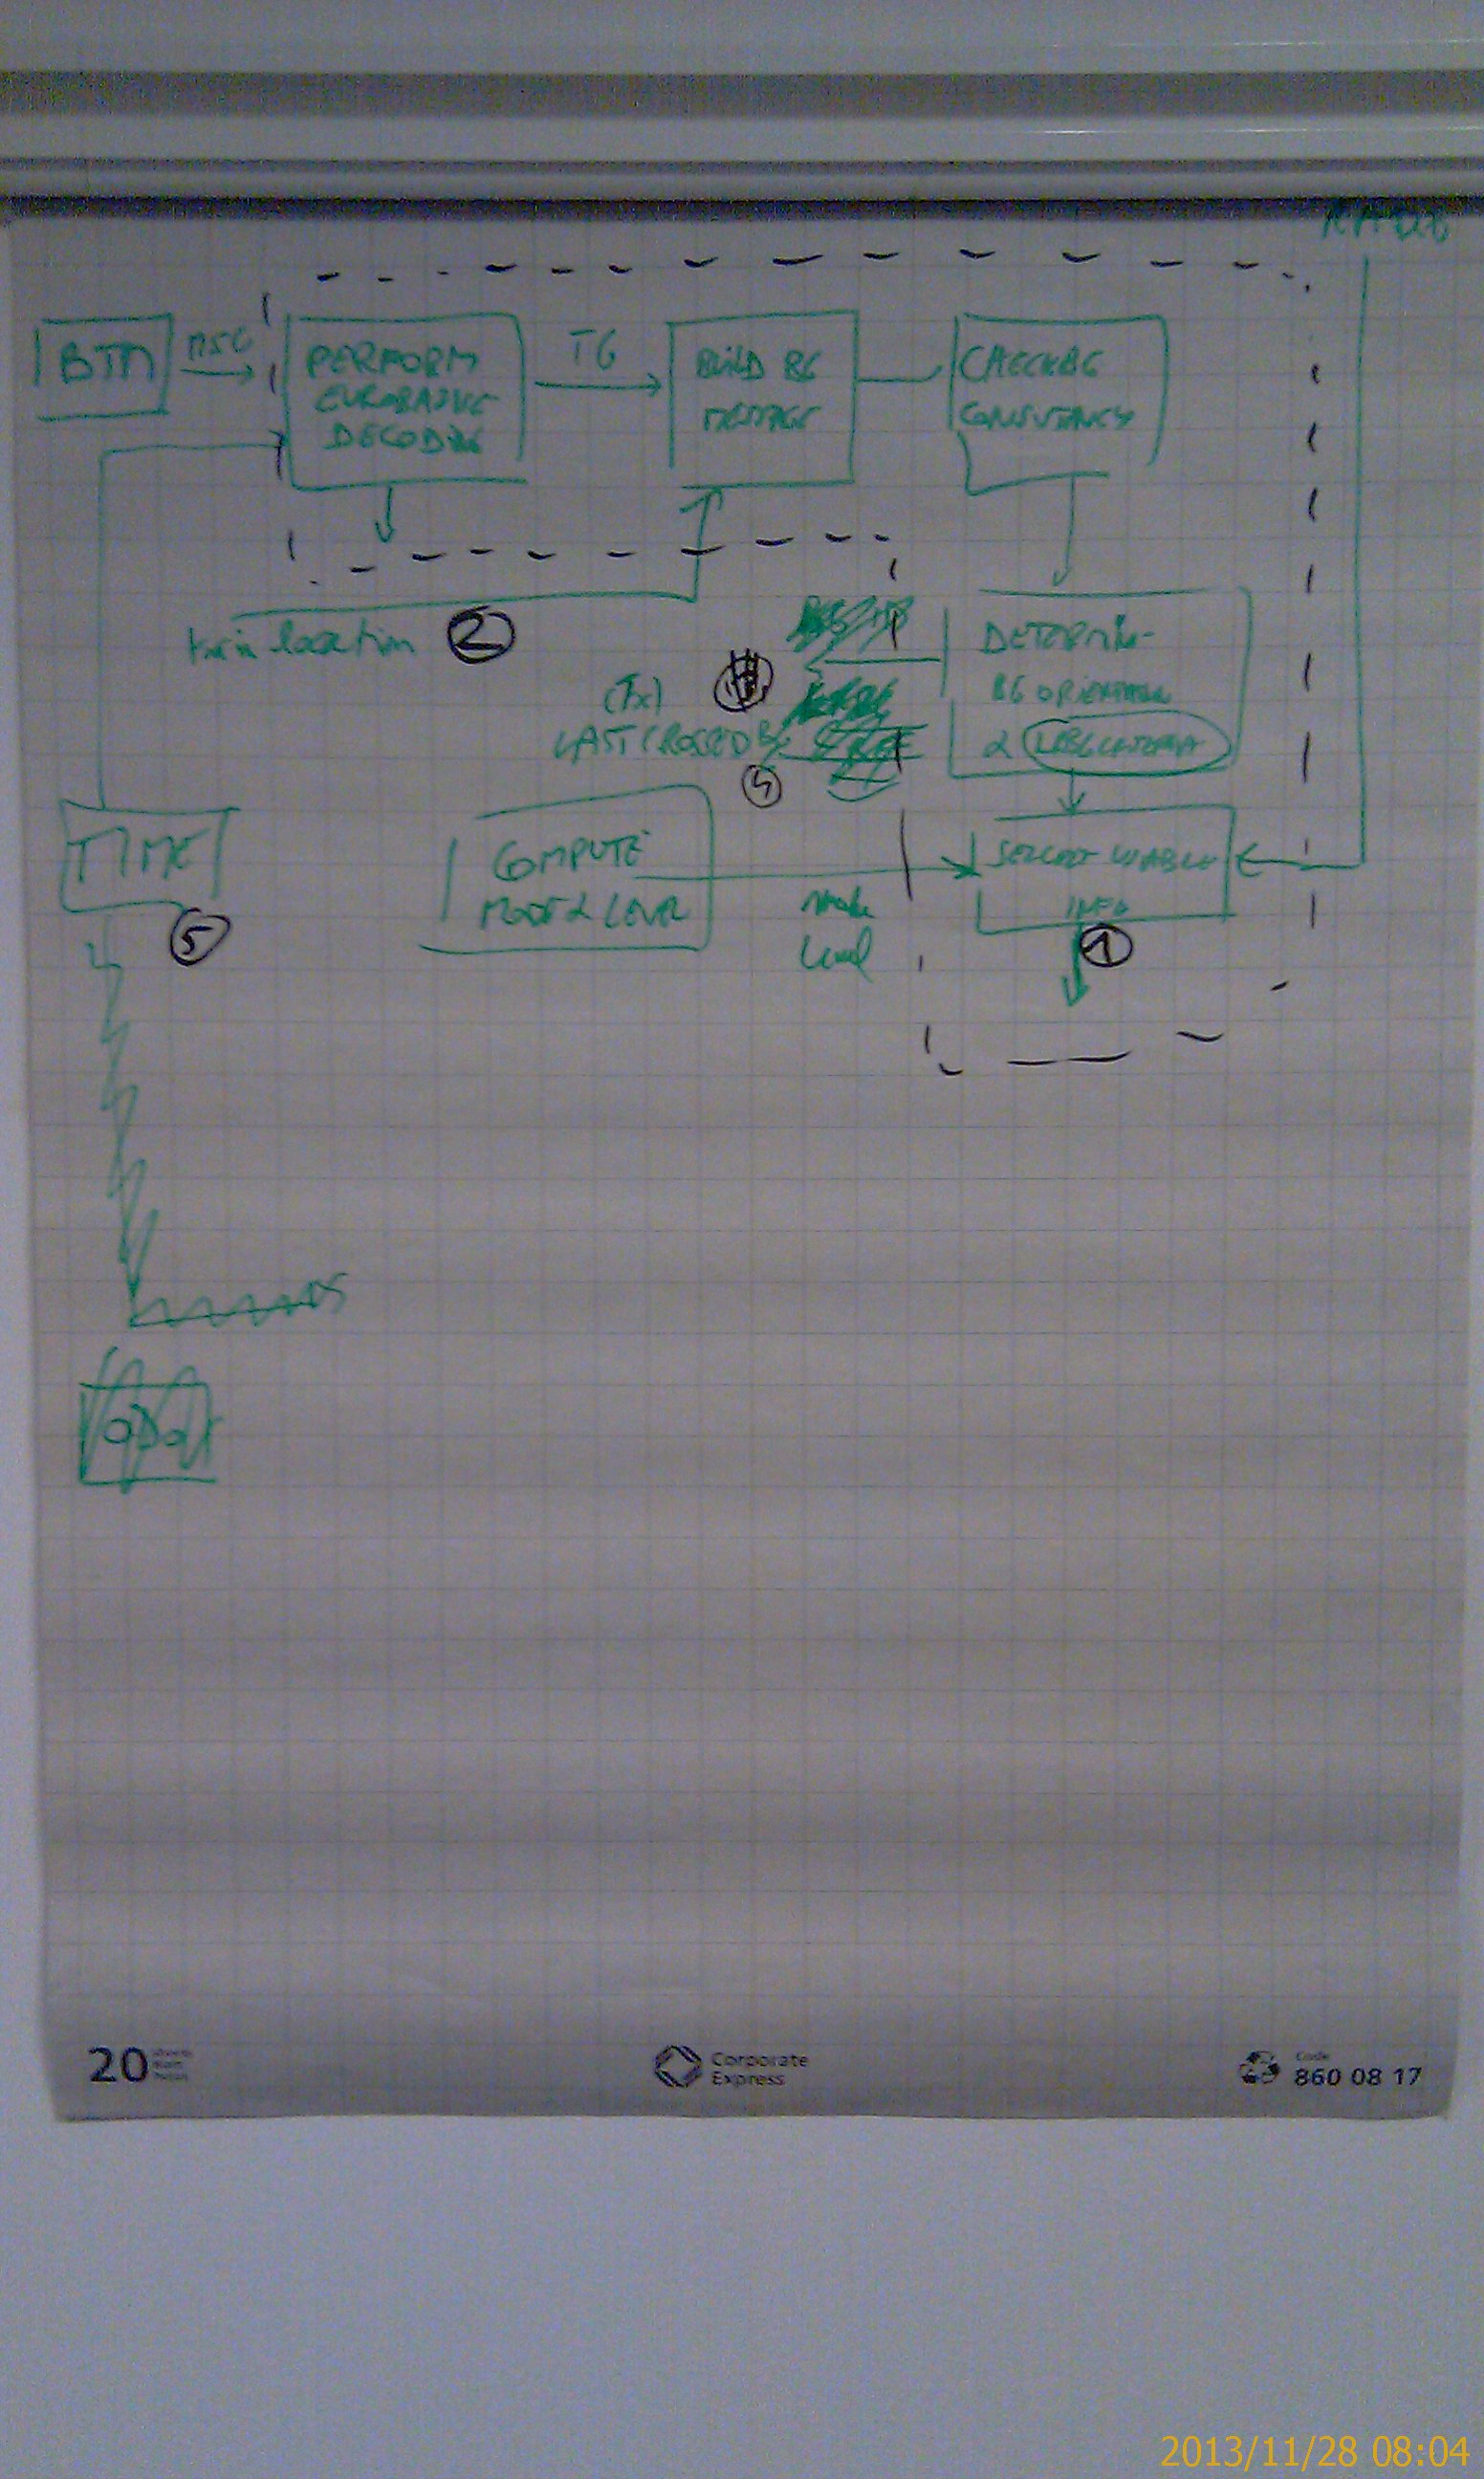 RADIO
BTM
MSG
PERFORM
EUROBALISE
DECODING
TG
BUILD BG
MESSAGE
CHECK BG
CONSISTENCY
train location
2
(Tx)
LAST CROSSED B
4
DETERMINE
BG ORIENTATION
& LRBG CRITERIA
TIME
5
COMPUTE
MODE & LEVEL
Mode
Level
SELECT USABLE
INFO
1
ODO
20
Corporate
Express
Code
860 08 17
2013/11/28 08:04